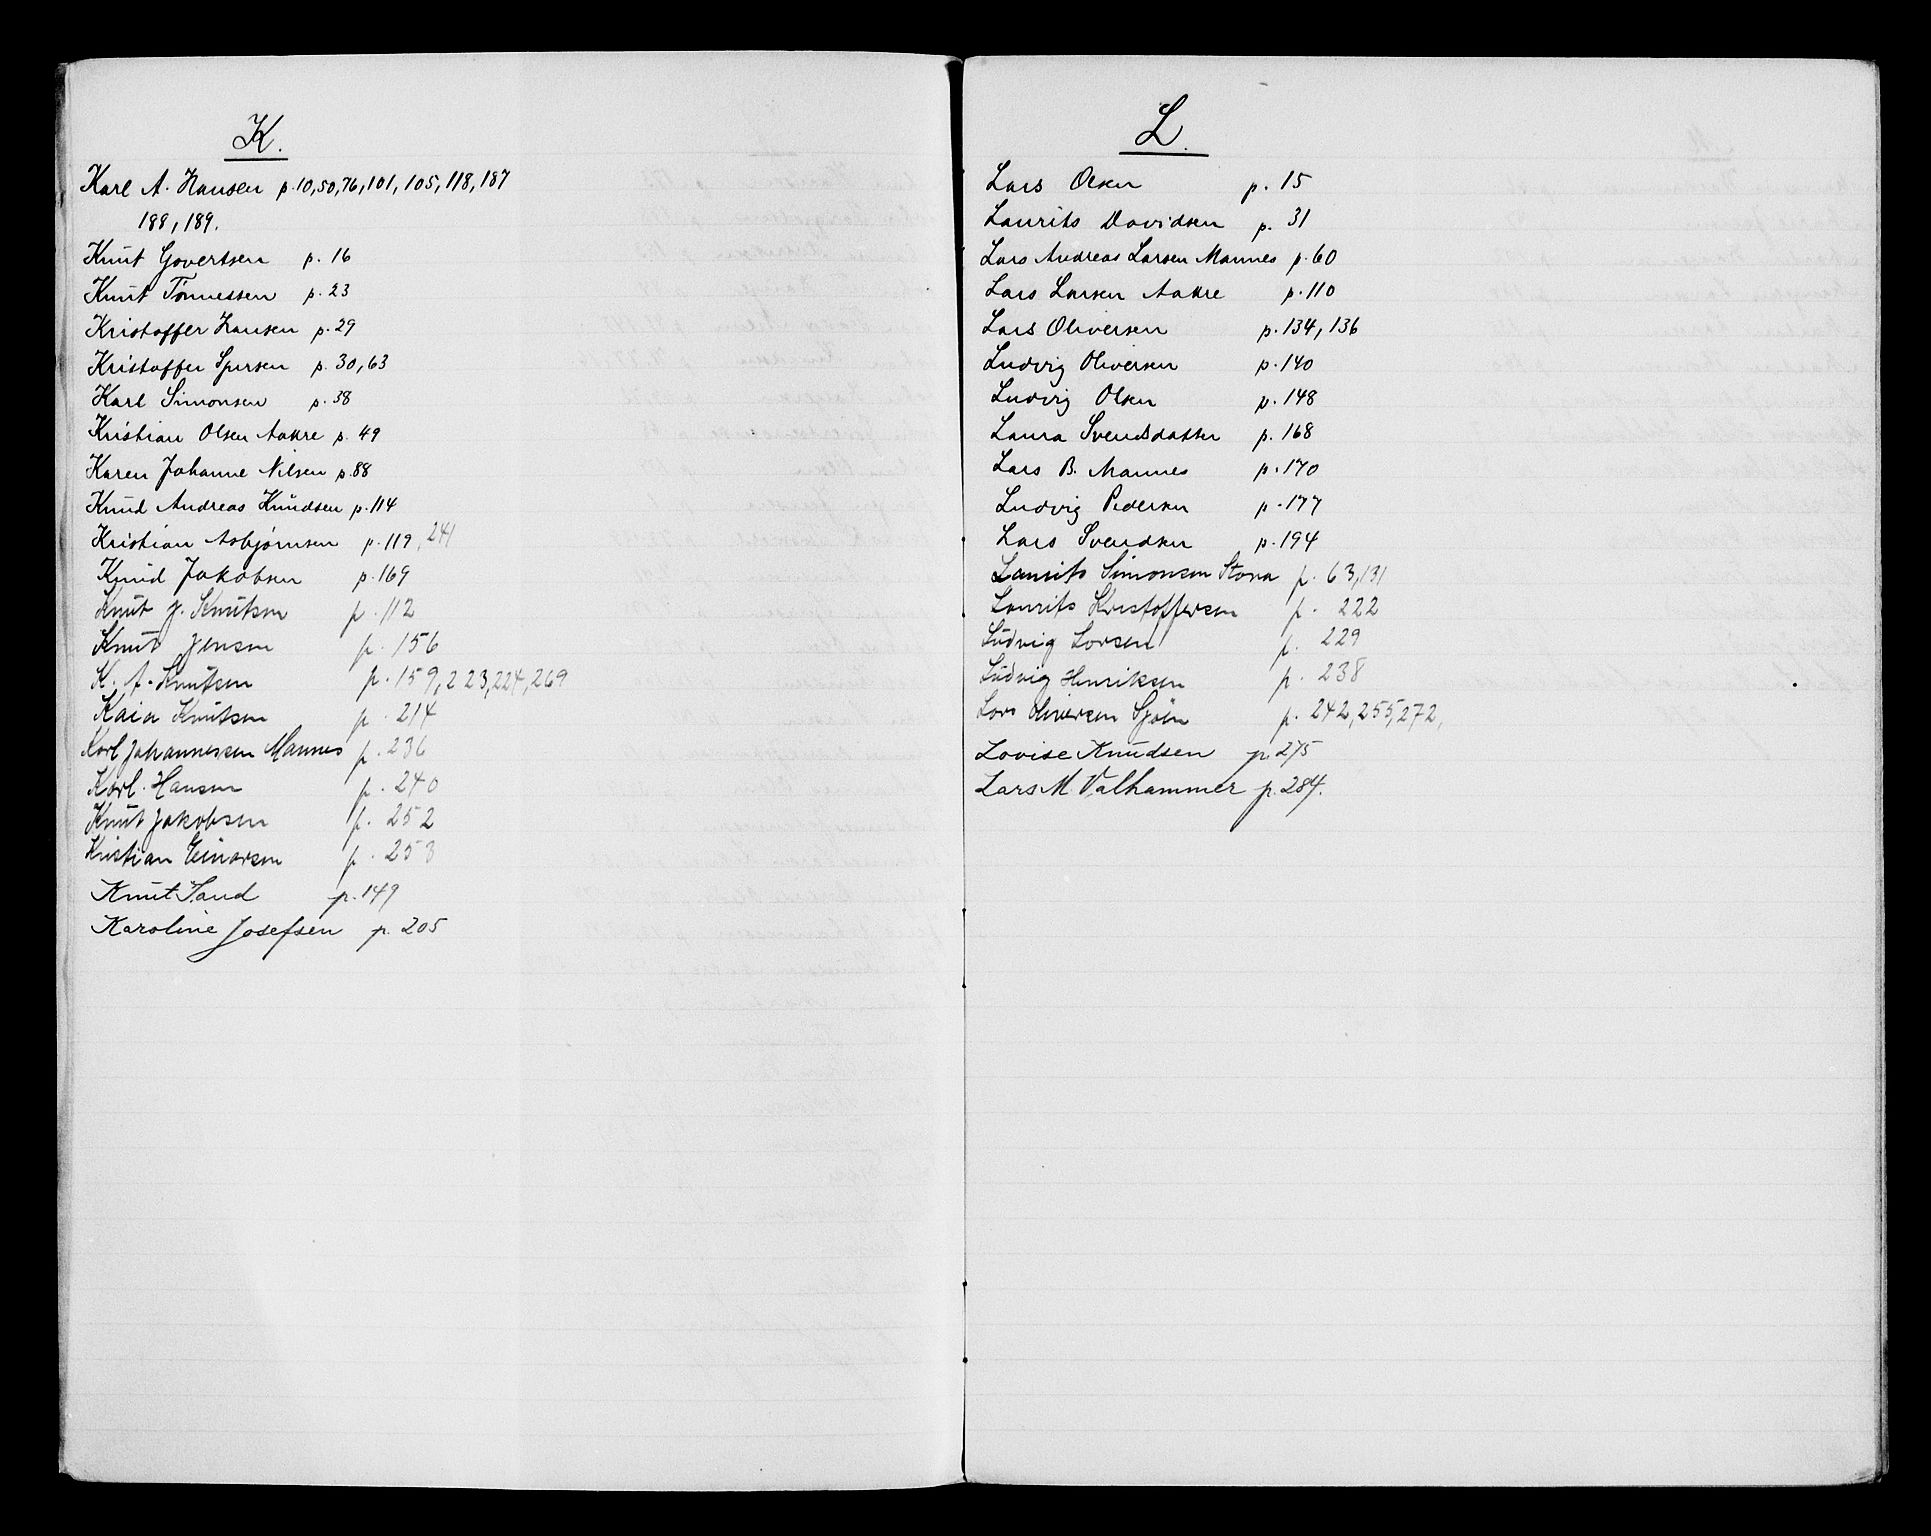 K.
Karl A. Hansen p. 10, 50, 76, 101, 105, 118, 187
188, 189.
Knut Govertsen p. 16
Knut Tönnessen p. 23
Kristoffer Hansen p. 29
Kristoffer Sjursen p. 30, 63
Karl Simonsen p. 38
Kristian Olsen Aakre p. 49
Karen Johanne Nilsen p. 88
Knud Andreas Knudsen p. 114
Kristian Asbjørnsen p. 119, 241
Knud Jakobsen p. 169
Knut J. Knutsen p. 112
Knut Jensen p. 156
K. A. Knutsen p. 159, 223, 224, 269
Kaia Knutsen p. 214
Karl Johannessen Mannes p. 236
Karl Hansen p. 240
Knut Jakobsen p. 252
Kristian Einarsen p. 253
Knut Sand p. 149
Karoline Josefsen p. 205
L.
Lars Olsen p. 15
Laurits Davidsen p. 31
Lars Andreas Larsen Mannes p. 60
Lars Larsen Aakre p. 110
Lars Oliversen p. 134, 136
Ludvig Oliversen p. 140
Ludvig Olsen p. 148
Laura Svendsdatter p. 168
Lars B. Mannes p. 170
Ludvig Pedersen p. 177
Lars Svendsen p. 194
Laurits Simonsen Stava p. 63, 131
Laurits Kristoffersen p. 222
Ludvig Larsen p. 229
Ludvig Henriksen p. 238
Lars Oliversen Sjöen p. 242, 255, 272,
Lovise Knudsen p. 275
Lars M. Valhammer p. 284.